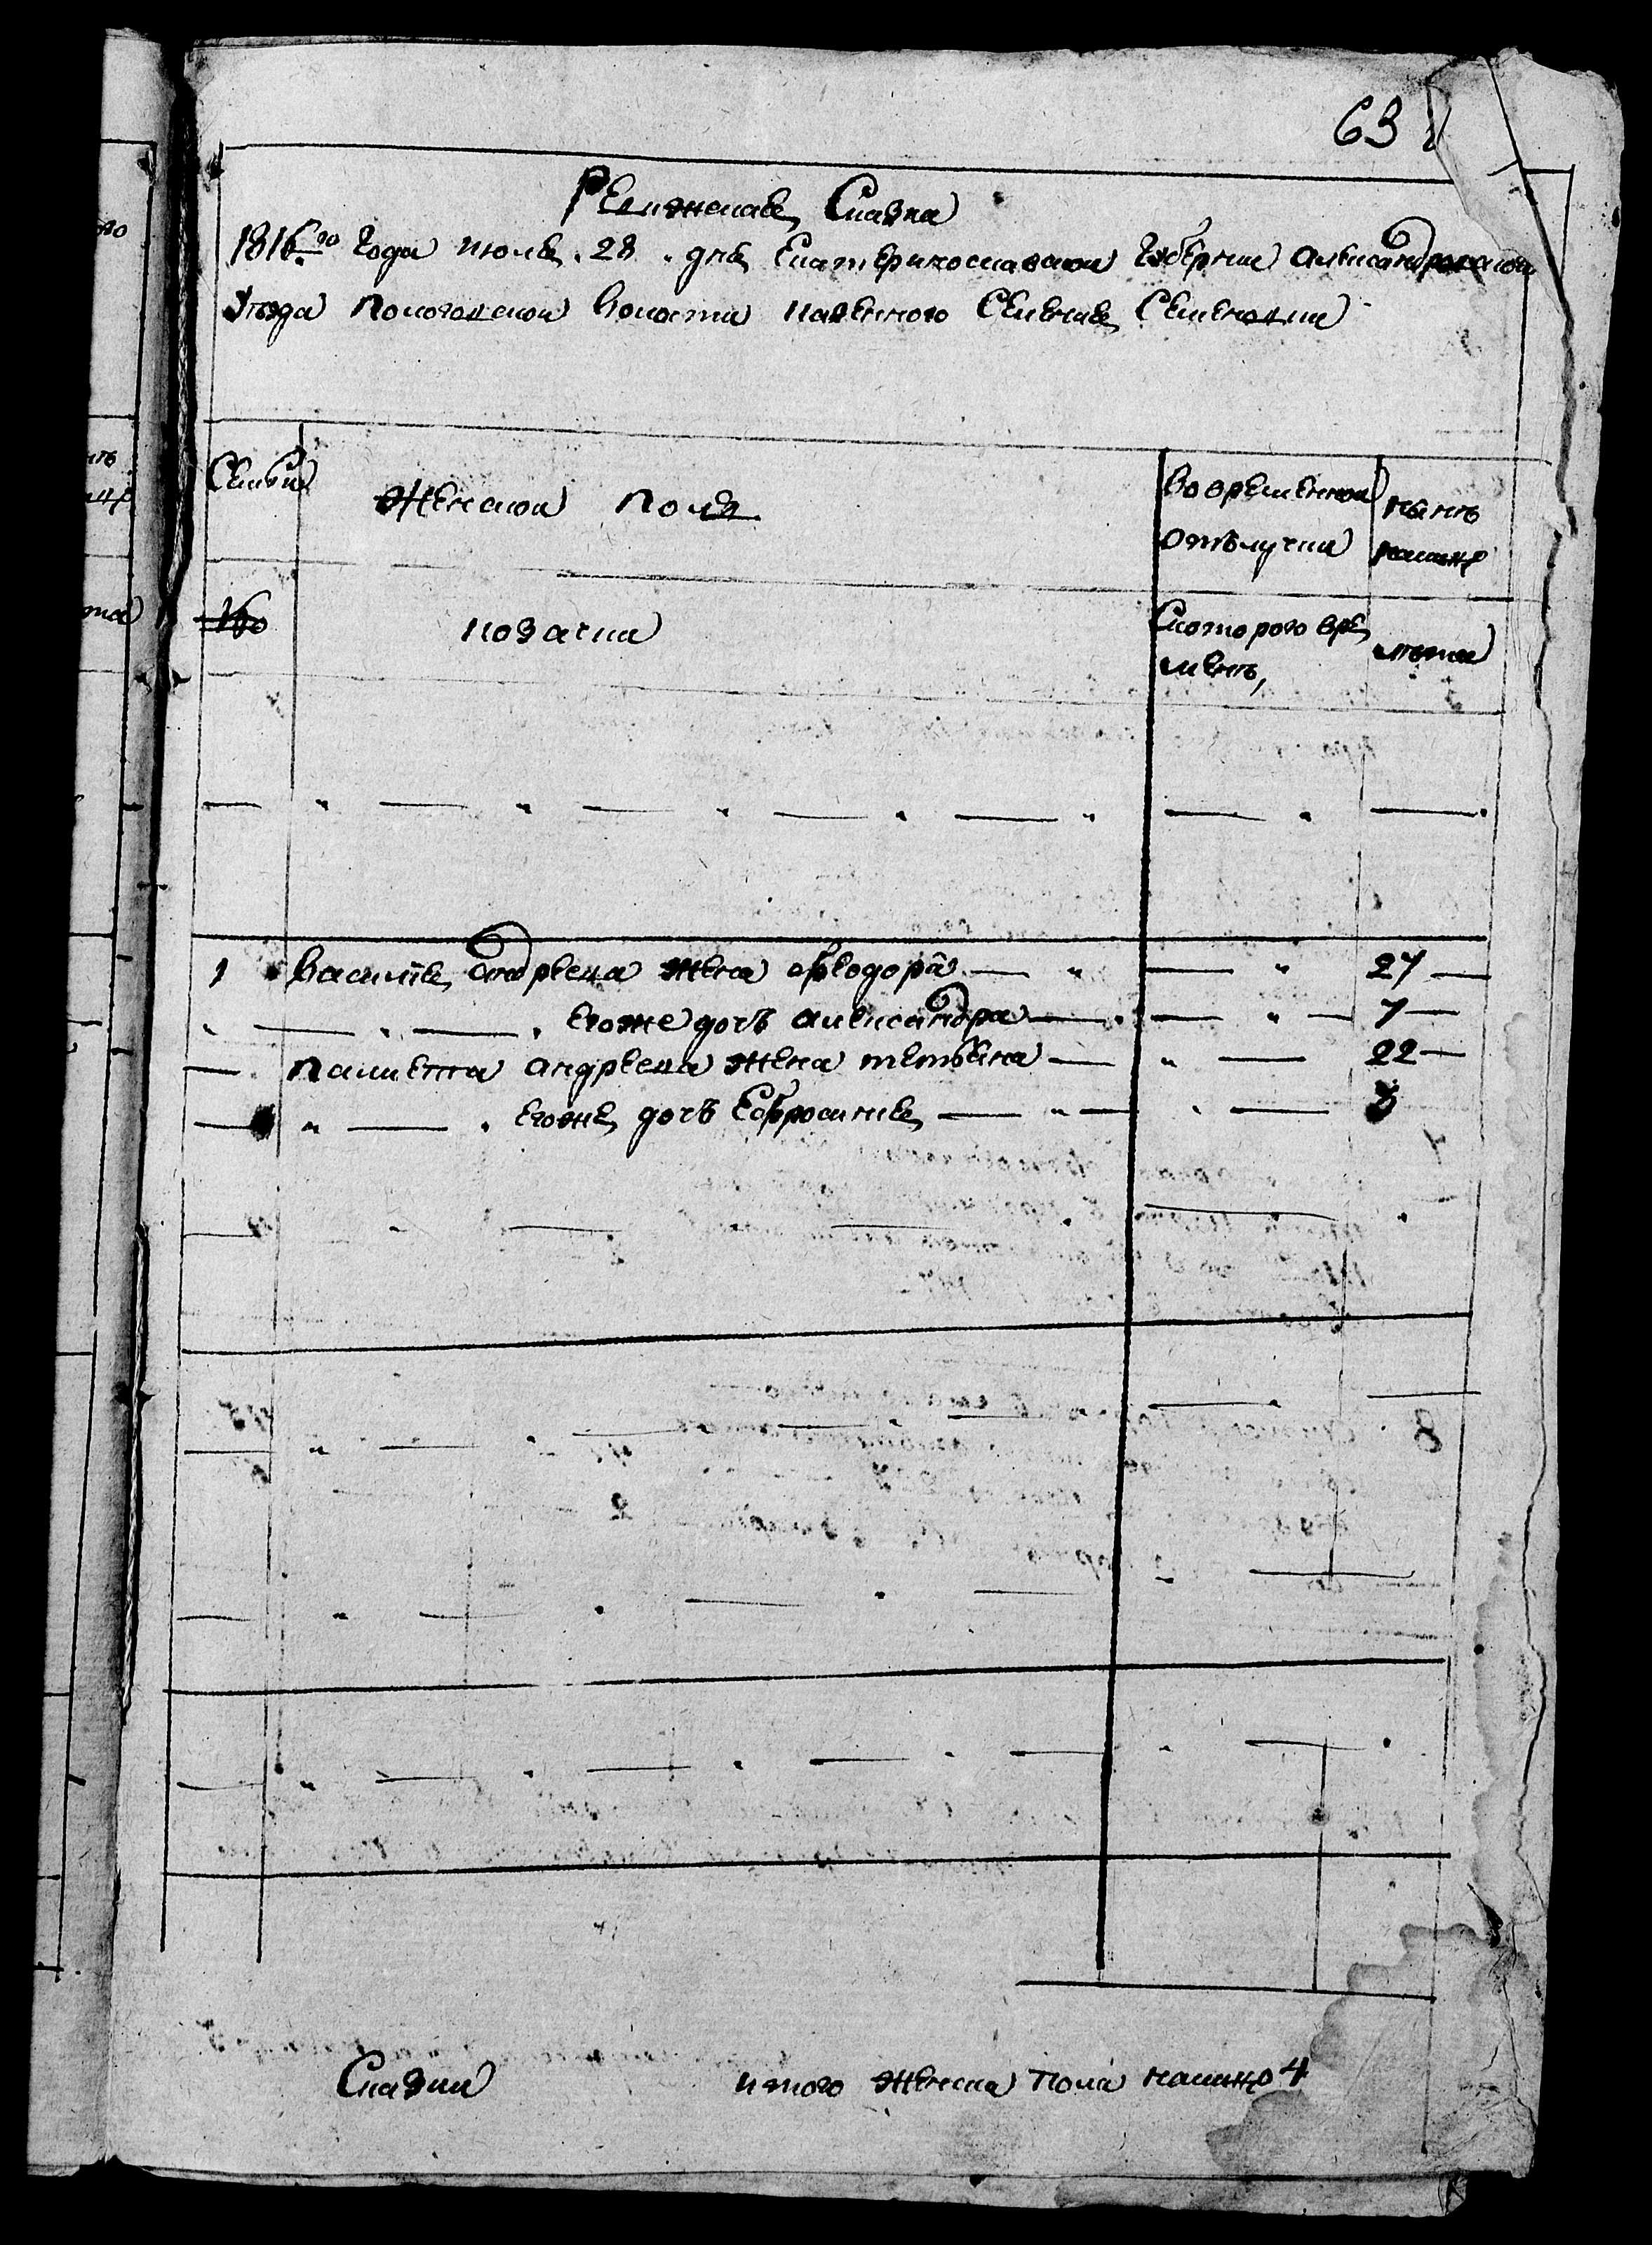 63
Ревижская Сказка
1816го Года июля 28 дня Екатеринославской Губернии Александровской
Уезда Пологовской Волости Казенного Селения Семеновки
Семьи
Женской полъ
Во временной
отълучки
нынѣ
налицо
№о
козачки
Скоторого вре
мени,
лѣта
1 Василія Андреева жена Феодора 27
Егоже дочъ Александра 7
Панкета Андреева жена тетъяна 22
Егоже дочъ Ефросиния 3
Сказки
итого женска пола налицо 4